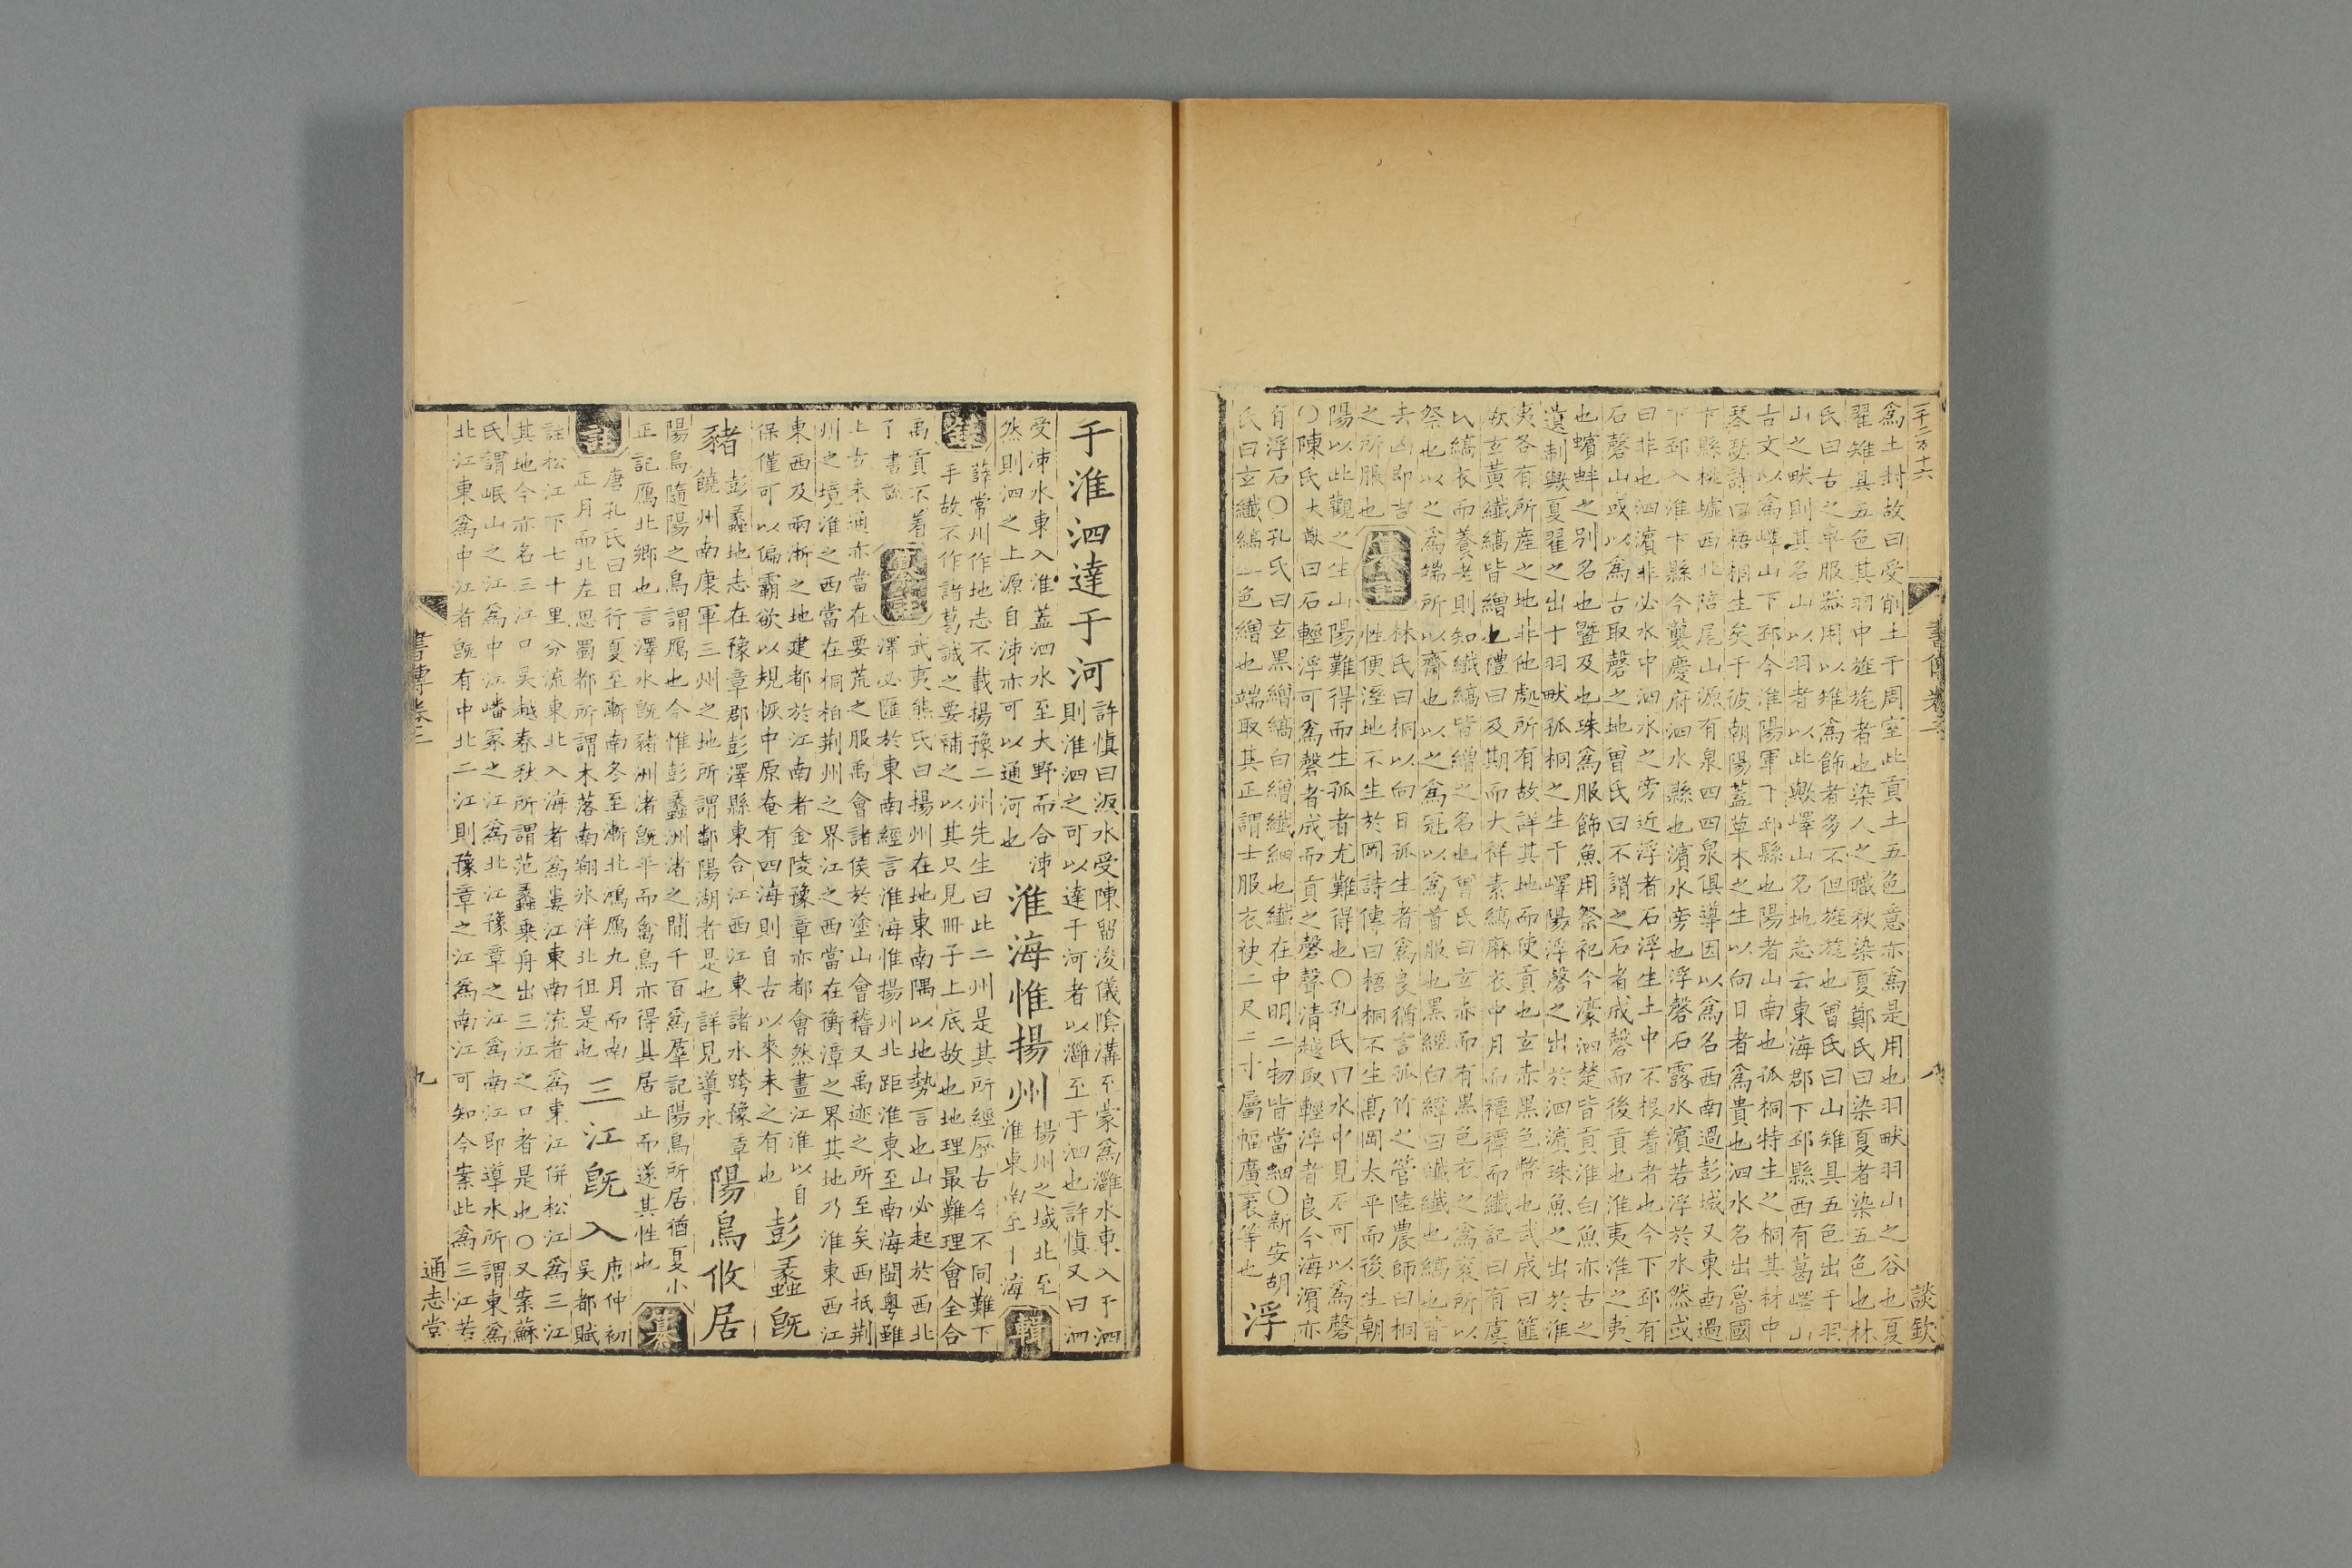 為土封故曰受削土于周室此貢土五色意亦為是用也羽畎羽山之谷也夏
翟雉具五色其羽中旌旄者也染人之職秋染夏鄭氏曰染夏者染五色也林
氏曰古之車服器用以雉為飾者多不但旌旄也曾氏曰山雉具五色出于羽
山之畎則其名山以羽者以此歟嶧山名地志云東海郡下邳縣西有葛嶧山
古文以為嶧山下邳今淮陽軍下邳縣也陽者山南也孤桐特生之桐其材中
琴瑟詩曰梧桐生矣于彼朝陽蓋草木之生以向日者為貴也泗水名出魯國
卞縣桃墟西北陪尾山源有泉四四泉俱導因以為名西南過彭城又東南過
下邳入淮卞縣今襲慶府泗水縣也濱水旁也浮磬石露水濱若浮於水然或
曰非也泗濱非必水中泗水之旁近浮者石浮生土中不根著者也今下邳有
石磬山或以為古取磬之地曾氏曰不謂之石者成磬而後貢也淮夷淮之夷
也蠙蚌之別名也暨及也珠為服飾魚用祭祀今濠泗楚皆貢淮白魚亦古之
遺制歟夏翟之出于羽畎孤桐之生于嶧陽浮磬之出於泗濱珠魚之出於淮
夷各有所產之地非他處所有故詳其地而使貢也玄赤黑色幣也武成曰篚
厥玄黃纖縞皆繒也禮曰及期而大祥素縞麻衣中月而禫禫而纖記曰有虞
氏縞衣而養老則知纖縞皆繒之名也曾氏曰玄赤而有黑色衣之為袞所以
祭也以之為端所以齋也以之為冠以為首服也黑經白緯曰纖纖也縞也皆
去凶即吉 纂註 林氏曰桐以向日孤生者為良猶言孤竹之管陸農師曰桐
之所服也 性便溼地不生於岡詩傳曰梧桐不生髙岡太平而後生朝
陽以此觀之生山陽難得而生孤者尤難得也○孔氏曰水中見石可以為磬
○陳氏大猷曰石輕浮可為磬者成而貢之磬聲清越取輕浮者良今海濱亦
有浮石○孔氏曰玄黑繒縞白繒纖細也纖在中明二物皆當細○新安胡
氏曰玄纖縞一色繒也端取其正謂士服衣袂二尺二寸屬幅廣袤等也
浮
書傳卷二
八
談欽
于淮泗達于河
許慎曰汳水受陳留浚儀陰溝至蒙為灉水東入于泗
則淮泗之可以達于河者以灉至于泗也許慎又曰泗
受泲水東入淮蓋泗水至大野而合泲
然則泗之上源自泲亦可以通河也
淮海惟揚州
揚州之域北至
淮東南至于海
輯
纂
薛常州作地志不載揚豫二州先生曰此二州是其所經歷古今不同難下
手故不作諸葛誠之要補之以其只見冊子上底故也地理最難理會全合
禹貢不着
了書說
纂註
武夷熊氏曰揚州在地東南隅以地勢言也山必起於西北
澤必匯於東南經言淮海惟揚州北距淮東至南海閩粵雖
上古未通亦當在要荒之服禹會諸侯於塗山會稽又禹迹之所至矣西抵荆
州之境淮之西當在桐柏荆州之界江之西當在衡漳之界其地乃淮東西江
東西及兩淅之地建都於江南者金陵豫章亦都會然畫江淮以自
保僅可以偏霸欲以規恢中原奄有四海則自古以來未之有也
彭蠡旣
豬
彭蠡地志在豫章郡彭澤縣東合江西江東諸水跨豫章
饒州南康軍三州之地所謂鄱陽湖者是也詳見導水
陽鳥攸居
陽鳥隨陽之鳥謂鴈也今惟彭蠡洲渚之間千百為羣記陽鳥所居猶夏小
正記鴈北鄉也言澤水旣豬洲渚旣平而禽鳥亦得其居止而遂其性也
纂
註
唐孔氏曰日行夏至漸南冬至漸北鴻鴈九月而南
正月而北左思蜀都所謂木落南翔氷泮北徂是也
三江旣入
唐仲初
吳都賦
註松江下七十里分流東北入海者為婁江東南流者為東江併松江為三江
其地今亦名三江口吳越春秋所謂范蠡乘舟出三江之口者是也○又案蘇
氏謂岷山之江為中江嶓冢之江為北江豫章之江為南江即導水所謂東為
北江東為中江者旣有中北二江則豫章之江為南江可知今案此為三江若
書傳卷二
九
通志堂